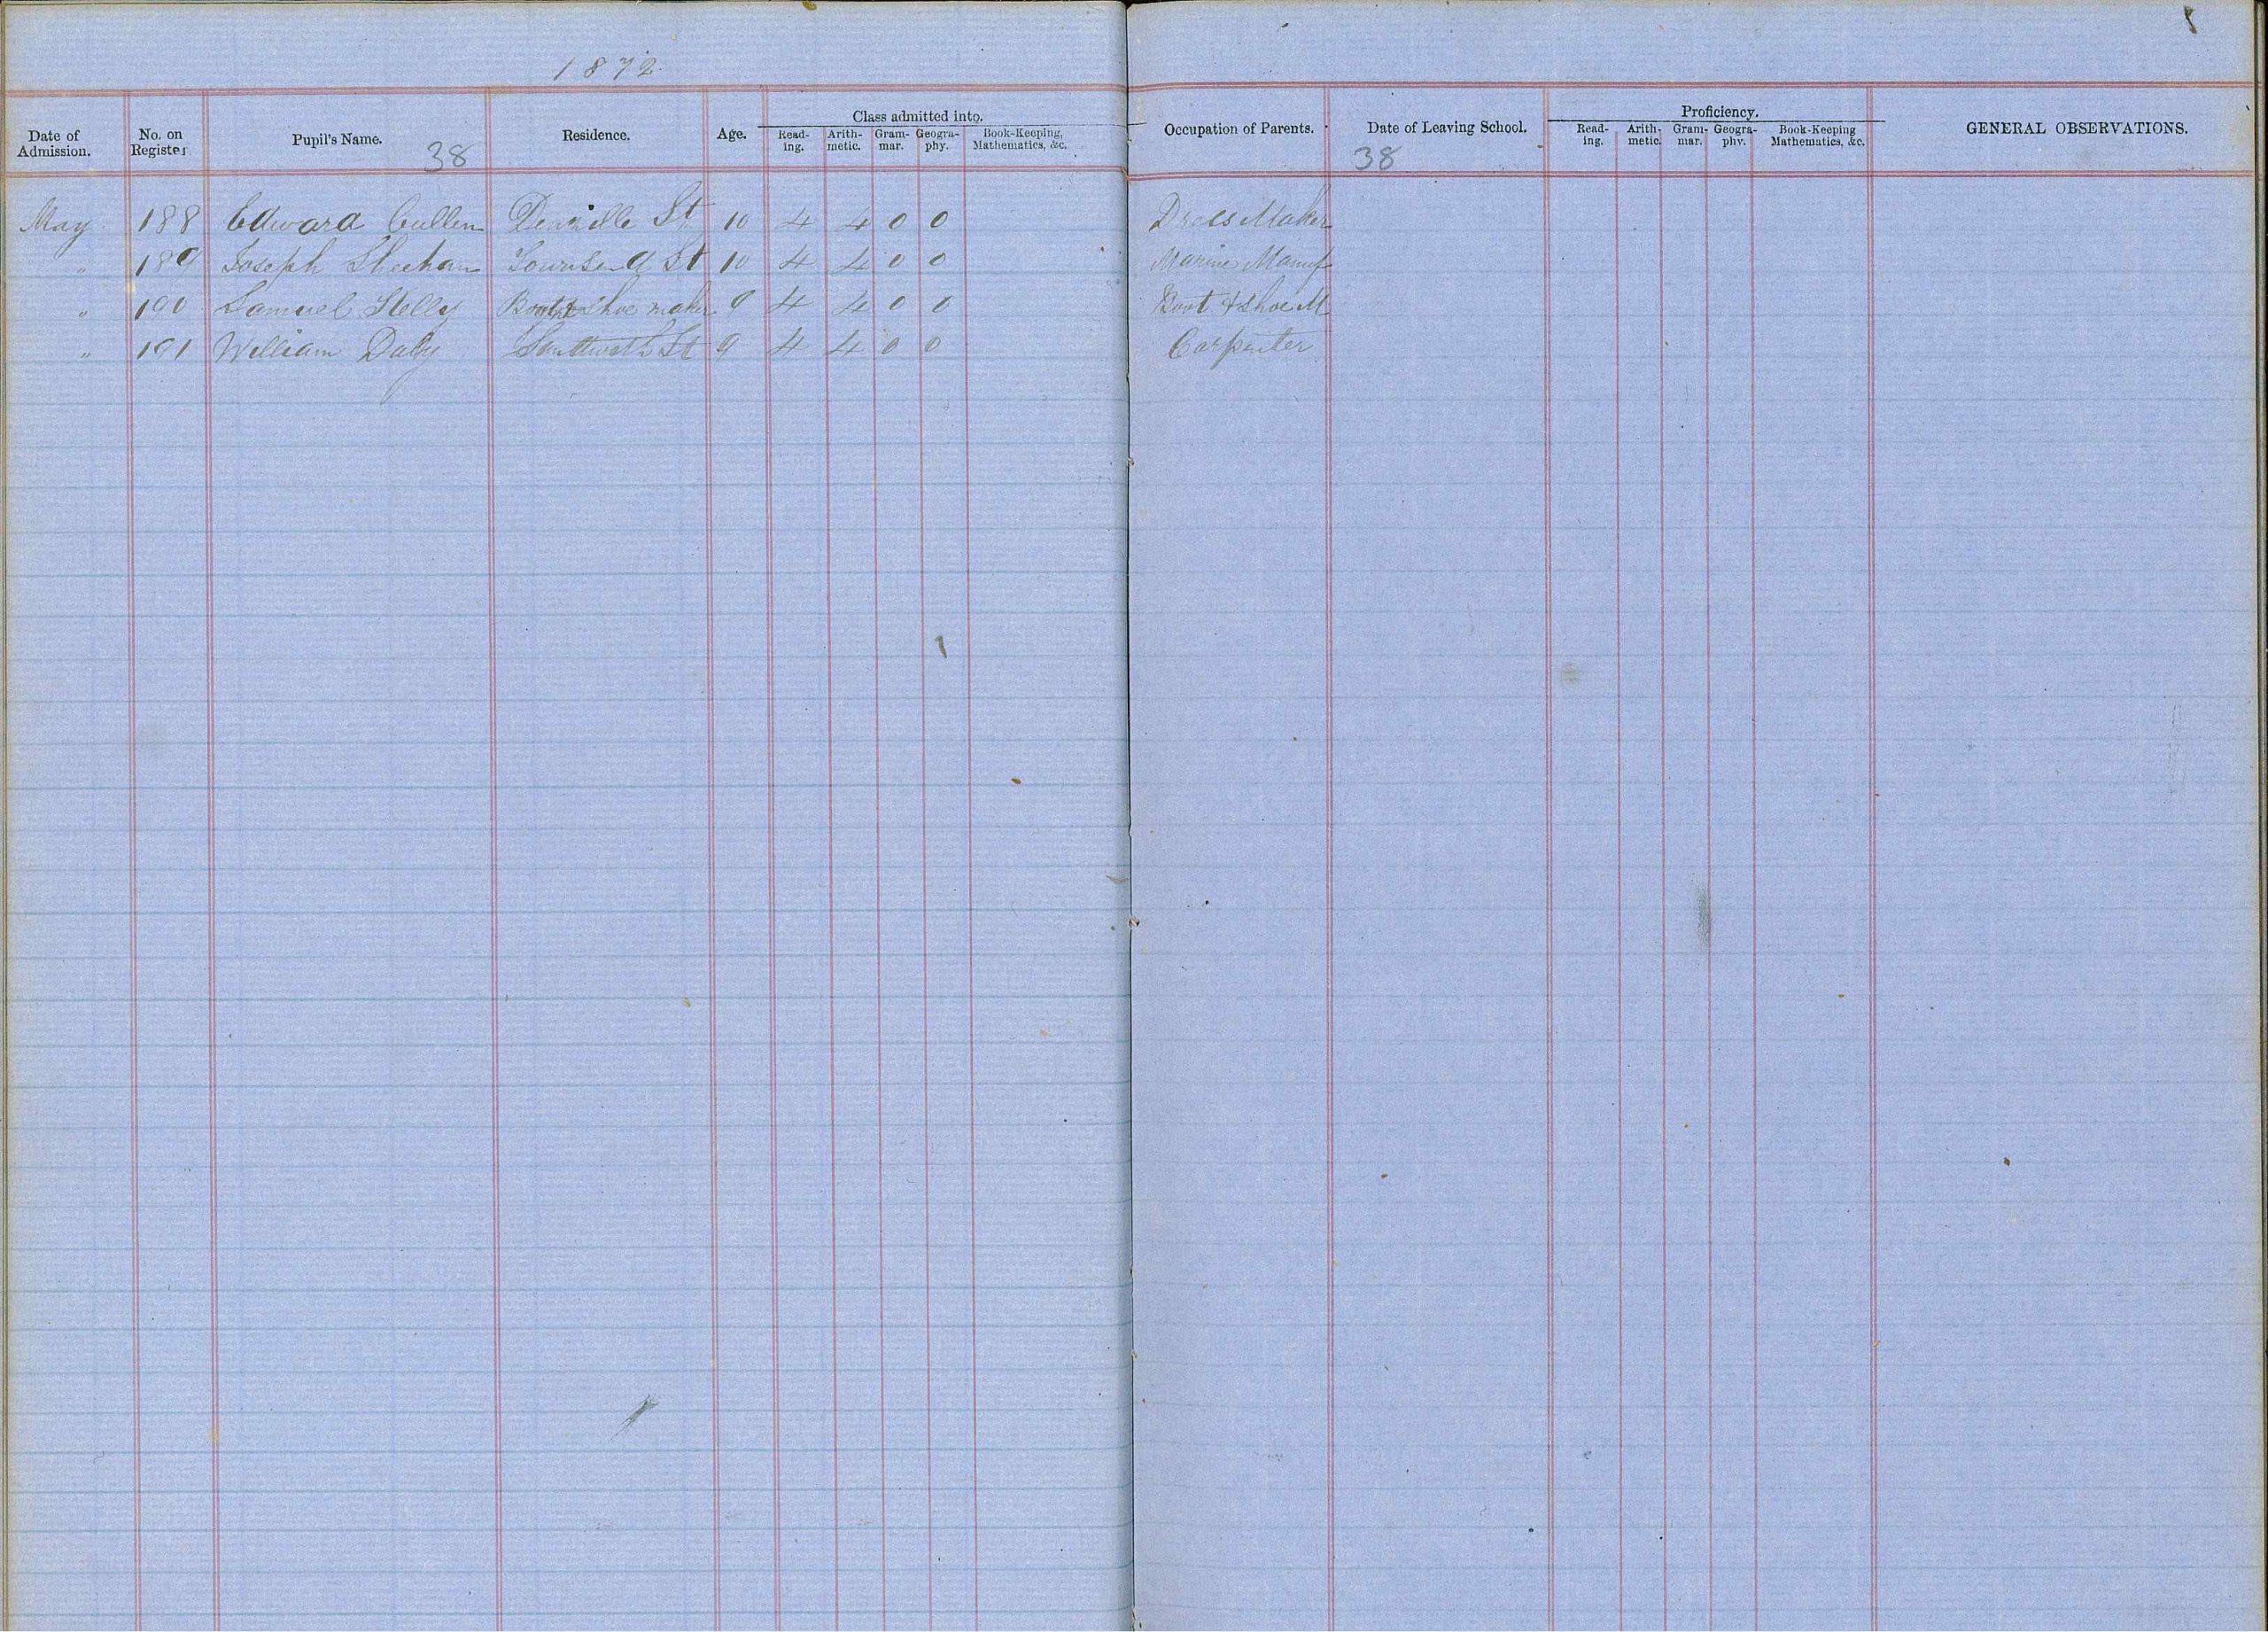 1872
Date of Admission. No. on Register Pupil's Name. Residence. Age. Class admitted into. Read-ing. Arith-metic. Gram-mar. Geogra-phy. Book-Keeping, Mathematics, &c. Occupation of Parents. Date of Leaving School. Proficiency. Read-ing. Arith-metic. Gram-mar. Geogra-phy. Book-Keeping Mathematics, &c. GENERAL OBSERVATIONS.
38 38
May 188 Edward Cullen Denzille St 10 4 4 0 0 Dress Maker
" 189 Joseph Sheehan Townsend St 10 4 4 0 0 Marine Manuf
" 190 Samuel Stelly Boot & Shoe maker 9 4 4 0 0 Boot & Shoe M
" 191 William Daly St 9 4 4 0 0 Carpenter